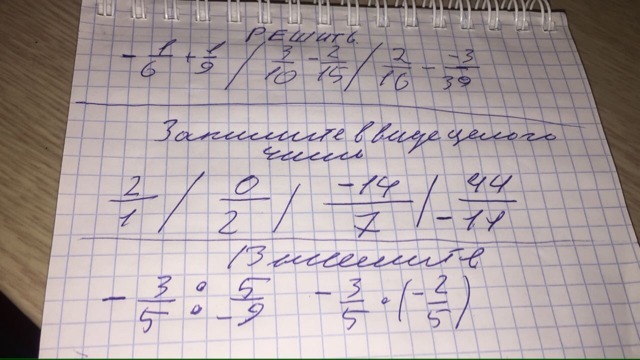 РЕШИТЬ
- 1/6 + 1/9 / 3/10 - 2/15 / 2/16 - -3/39
Запишите в виде целого
числа
2/1 / 0/2 / -14/7 / 44/-11
Вычислите
- 3/5 : 5/-9   - 3/5 · (- 2/5)